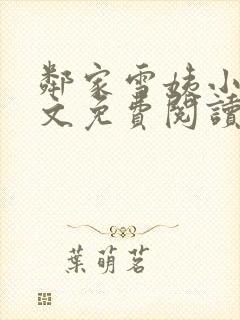 鄰家雪姨小
文免費閱讀
葉萌茗